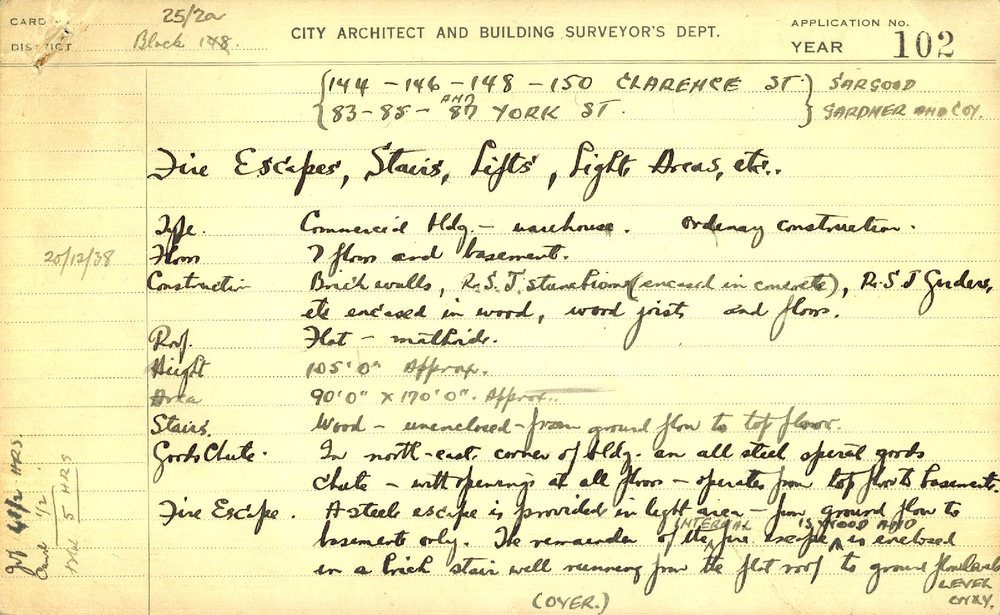 CARD No.
25/2a
CITY ARCHITECT AND BUILDING SURVEYOR'S DEPT.
APPLICATION No.
DISTRICT
Block 148
YEAR 102
144 - 146 - 148 - 150 CLARENCE ST. SARGOOD
83 - 85 - AND 87 YORK ST. GARDNER AND COY.
Fire Escapes, Stairs, Lifts, Light Areas, etc..
Type. Commercial bldg. - warehouse. Ordinary construction.
20/12/38
Floors 7 floors and basement.
Construction Brick walls, R.S.J. stanchions (encased in concrete), R.S.J Girders,
etc encased in wood, wood joists and floors.
Roof. Flat - malthoid.
Height 105'0" Approx.
Area 90'0" x 170'0". Approx..
Stairs. Wood - unenclosed - from ground floor to top floor.
Goods Chute. In north-east corner of bldg. an all steel spiral goods
chute - with openings at all floors - operates from top floor to basement.
Fire Escape. A steel escape is provided in light area - from ground floor to
basement only. The remainder of the INTERNAL fire escape IS WOOD AND is enclosed
in a brick stair well running from the flat roof to ground floor level
LEVEL
ONLY.
(OVER.)
4 1/2 HRS
1/2
5 HRS